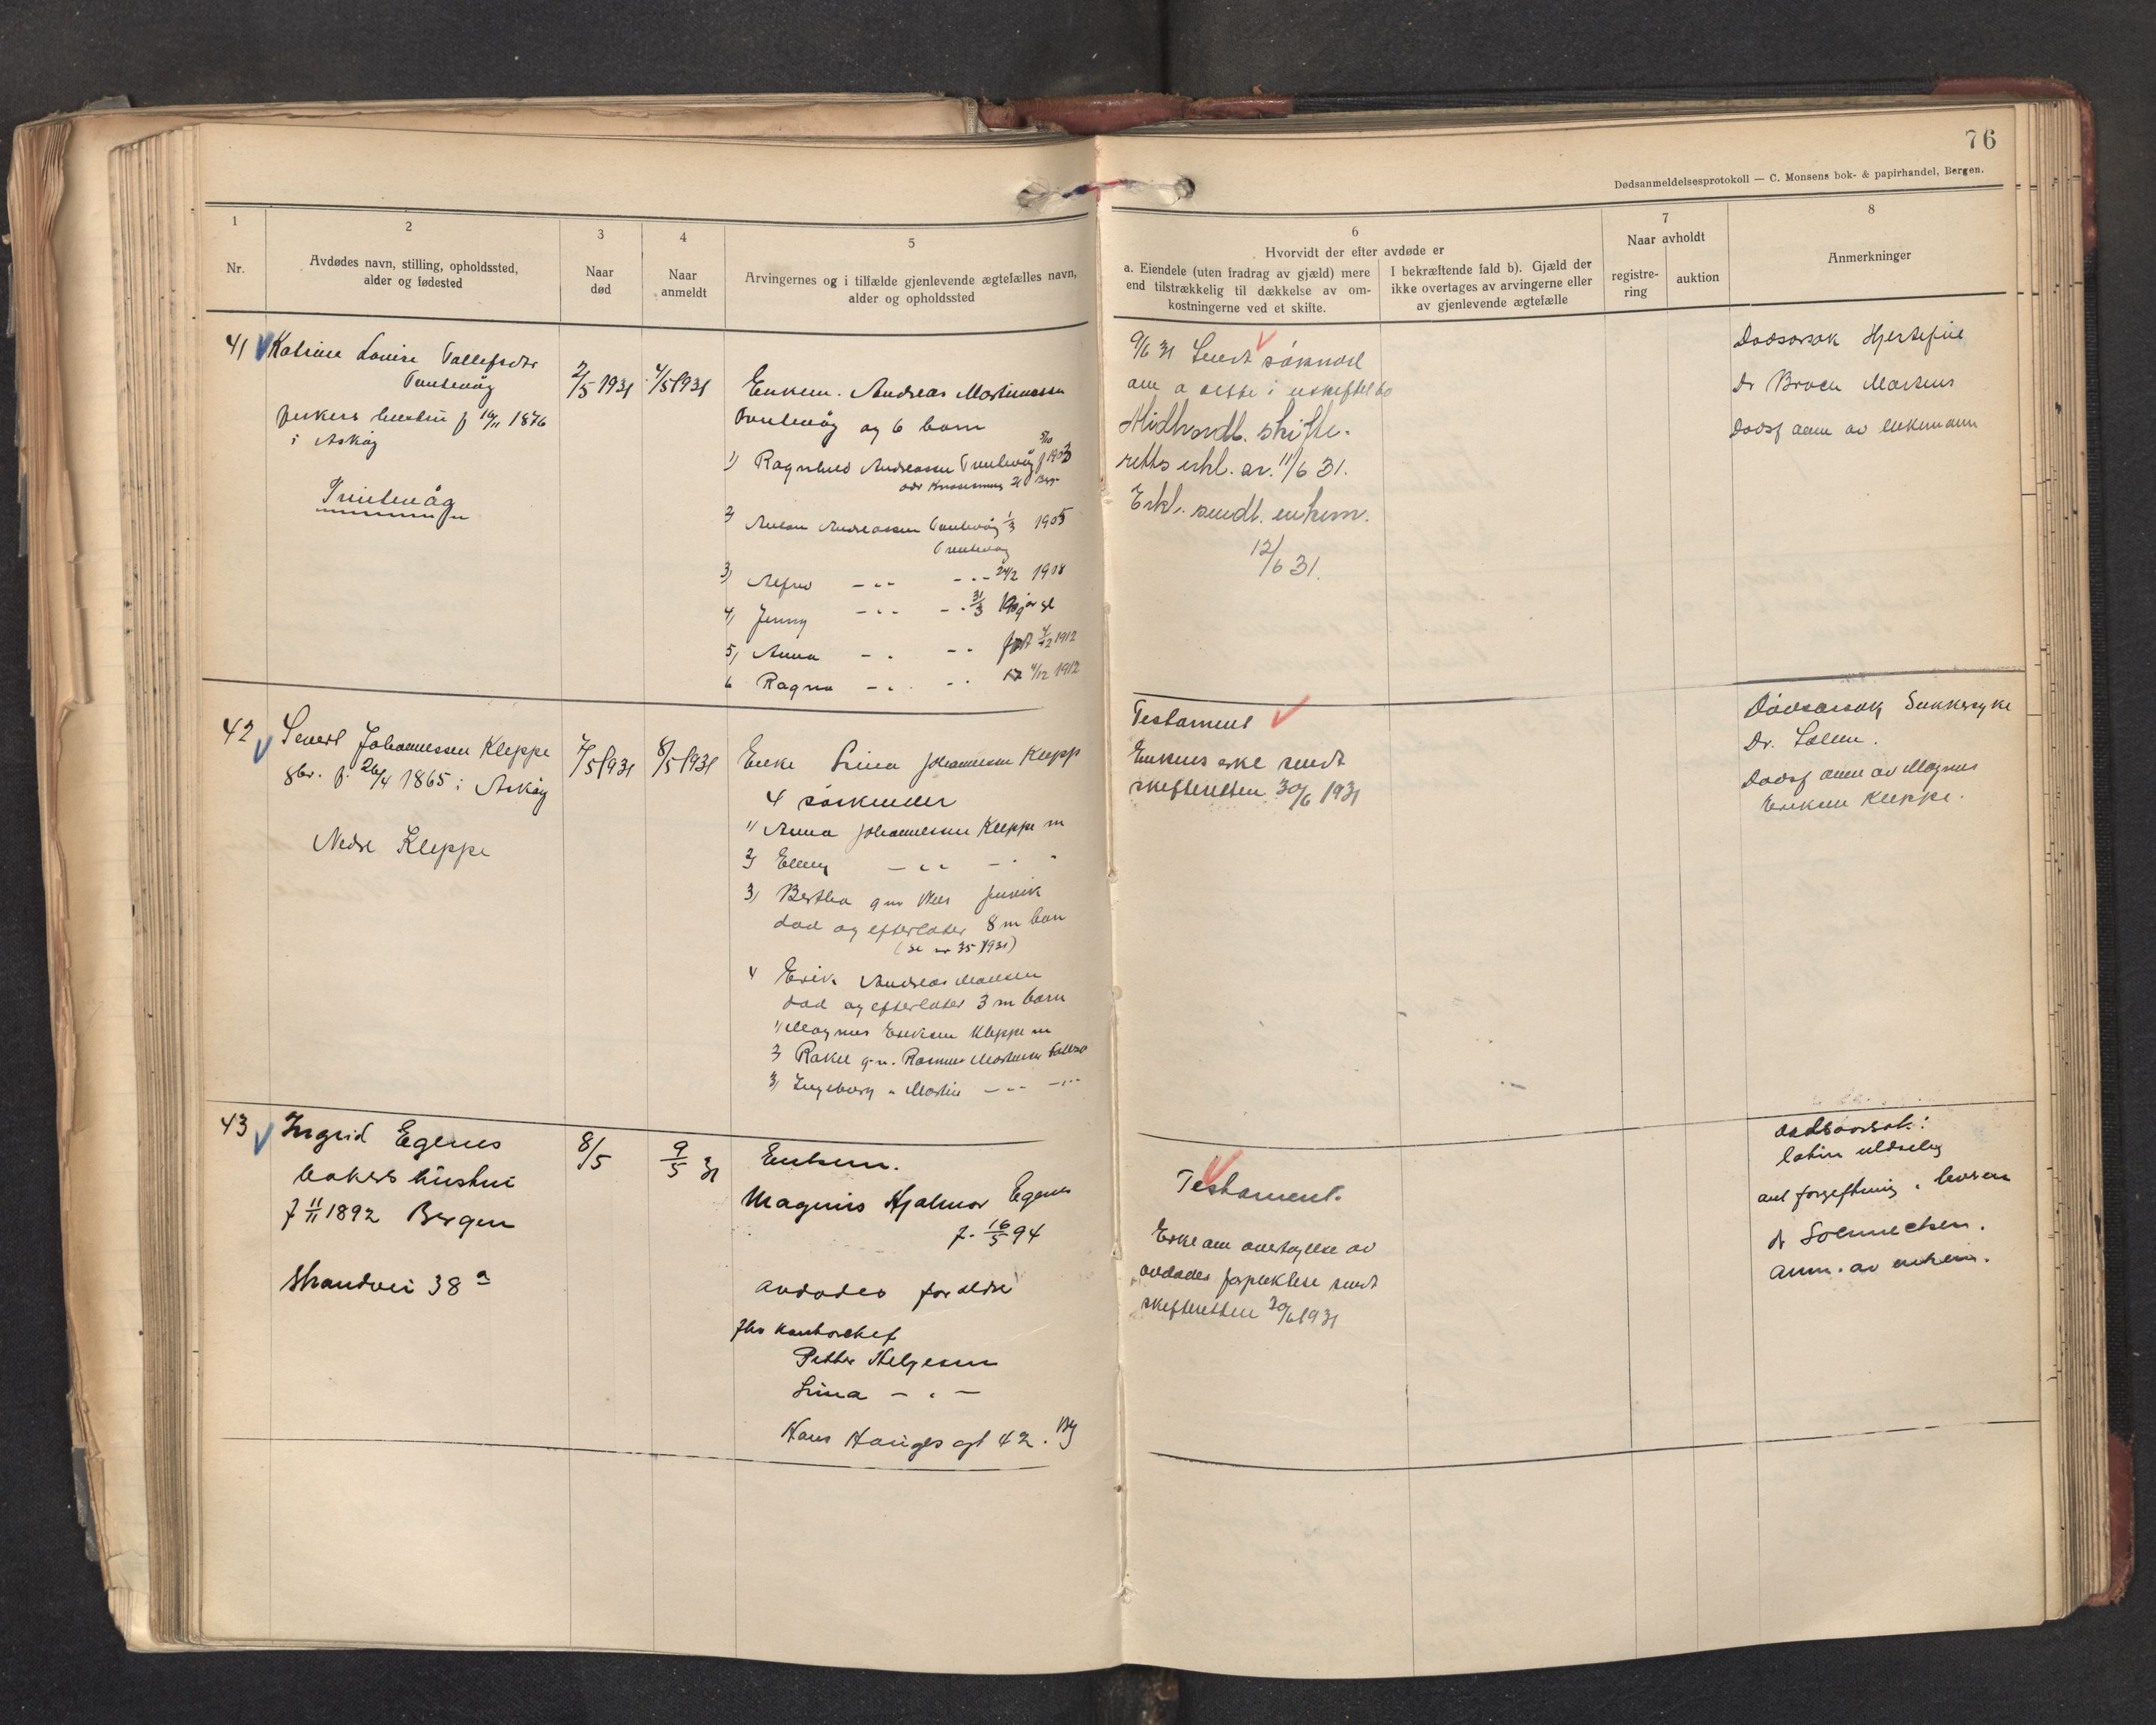 76
Dødsanmeldelsesprotokoll — C. Monsens bok- & papirhandel, Bergen.
1
Nr.
2
Avdødes navn, stilling, opholdssted,
alder og fødested
3
Naar
død
4
Naar
anmeldt
5
Arvingernes og i tilfælde gjenlevende ægtefælles navn,
alder og opholdssted
6
Hvorvidt der efter avdøde er
a. Eiendele (uten fradrag av gjæld) mere
end tilstrækkelig til dækkelse av om-
kostningerne ved et skifte.
I bekræftende fald b). Gjæld der
ikke overtages av arvingerne eller
av gjenlevende ægtefælle
7
Naar avholdt
registre-
ring
auktion
8
Anmerkninger
41
Katrine Lovise Tollefsdtr
fiskers hustru f 1876
i Askøy
2/5 1931
4/5 1931
Enkem. Andreas Martinussen
og 6 born
1) Ragnhild Andreassen
2) Andreassen 1/3 1905
3) Alfred — " — — " — 24/2 1908
4) Jenny — " — 31/3
5) Anna — " — 4/12 1912
6 Ragna — " — 4/12 1912
9/6 31 Sendt søknad
om a sitte i uskiftet bo
Midhordl. skifte-
retts erkl. av. 11/6 31.
Erkl. sendt. enkem.
12/6 31.
Dødsårsak Hjertefeil
Dr Martens
Dødsf anm av enkemann
42
Severt Johannessen Kleppe
gbr. f. 26/4 1865 i Askøy
Nedre Kleppe
7/5 1931
8/5 1931
Enke Lina Johannessen Kleppe
4 søskender
1) Anna Johannessen Kleppe m
2) Elling — " — — " —
3) Bertha g m Nils
død og efterlater 8 m barn
(se nr 35 1931)
4 Erik Andreas
død og efterlater 3 m barn
1) Magnus Eriksen Kleppe m
2) Rakel g.m. Rasmus
3) Ingeborg " Martin — " — — " —
Testament
Enkens erkl sendt
skifteretten 30/6 1931
Dødsarsak Sukkersyke
Dr.
Dødsf anm av Magnus
Eriksen Kleppe.
43
Ingrid Egenes
bakers hustru
f 11/11 1892 Bergen
Strandvei 38 a
8/5
9/5 31
Enkem.
Magnus Hjalmar Egenes
f. 16/5 94
avdødes foraldre
fhv kontorchef
Petter Helgesen
Lina — " —
Hans Hauges gt 42. By
Testament.
Erkl om overtagelse av
avdødes forpliktelse sendt
skifteretten 30/6 1931
dødsaarsak:
forgiftning
dr
anm. av enkem.